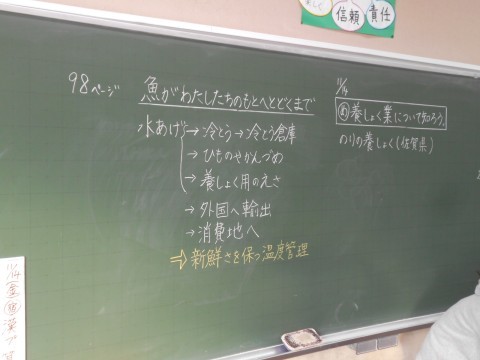 信頼
責任
98ページ
魚がわたしたちのもとへとどくまで
水あげ→冷とう→冷とう倉庫
→ひものやかんづめ
→養しょく用のえさ
→外国へ輸出
→消費地へ
⇒新鮮さを保つ温度管理
11/14
め 養しょく業について知ろう。
のりの養しょく(佐賀県)
11/14 金 宿 漢